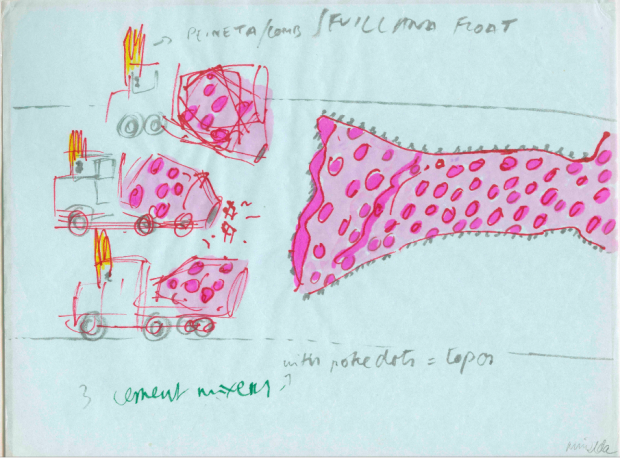 → PEINETA/COMB / SEVILLANA FLOAT
with poke dots = topos
3 cement mixers
Miralda